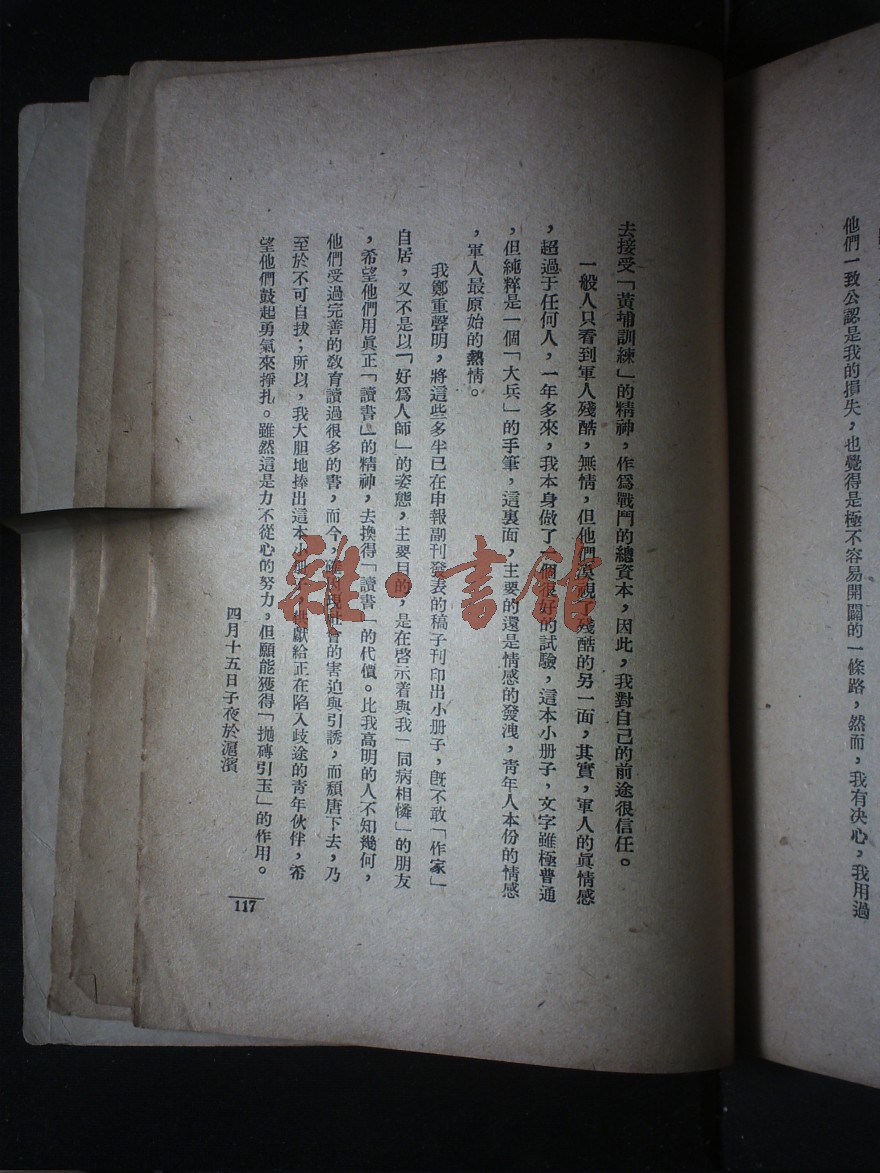 他們一致公認是我的損失，也覺得是極不容易開闢的一條路，然而，我有决心，我用過
去接受「黃埔訓練」的精神，作爲戰鬥的總資本，因此，我對自己的前途很信任。
一般人只看到軍人殘酷，無情，但他們漠視了殘酷的另一面，其實，軍人的眞情感
，超過于任何人，一年多來，我本身做了一個很好的試驗，這本小册子，文字雖極普通
，但純粹是一個「大兵」的手筆，這裏面，主要的還是情感的發洩，靑年人本份的情感
，軍人最原始的熱情。
我鄭重聲明，將這些多半已在申報副刊發表的稿子刊印出小册子，旣不敢「作家」
自居，又不是以「好爲人師」的姿態，主要目的，是在啓示着與我「同病相憐」的朋友
，希望他們用眞正「讀書」的精神，去換得「讀書」的代價。比我高明的人不知幾何，
他們受過完善的敎育讀過很多的書，而今，確因現社會的害迫與引誘，而頹唐下去，乃
至於不可自拔；所以，我大胆地捧出這本小册子，供獻給正在陷入歧途的靑年伙伴，希
望他們鼓起勇氣來掙扎。雖然這是力不從心的努力，但願能獲得「拋磚引玉」的作用。
四月十五日子夜於滬濱
117
雜·書館